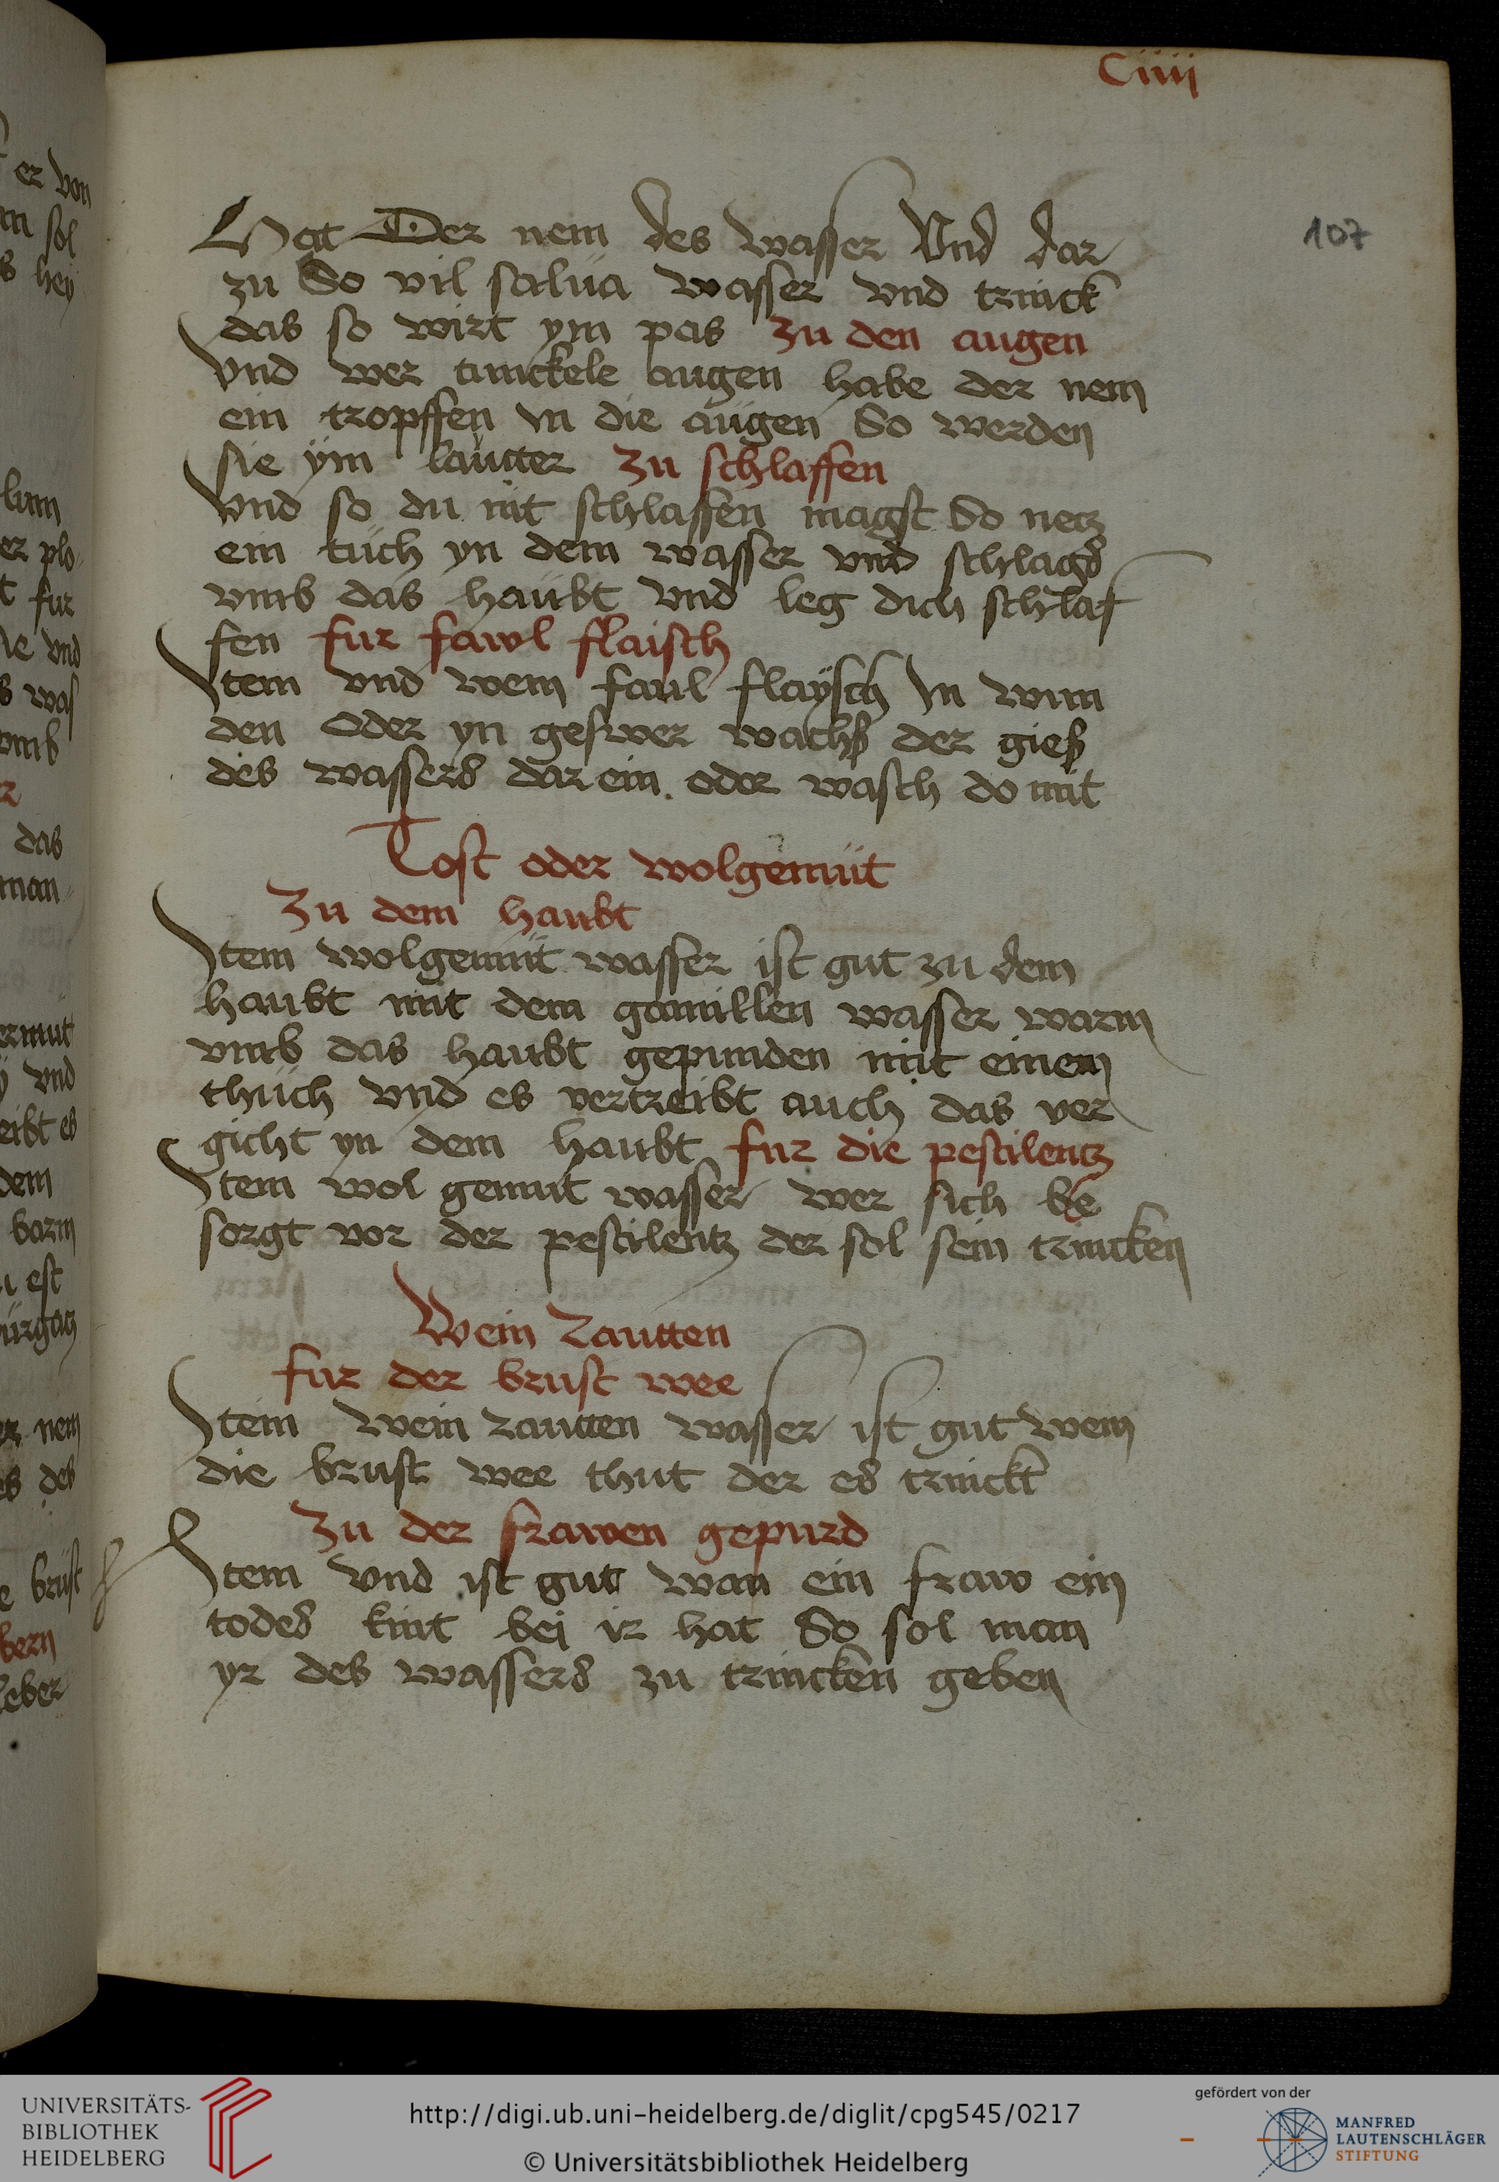 Ciiij
107
Hat Der nem des wasser Vnd dar
zu So vil salüa wasser vnd trinck
das so wirt ym pas zu den augen
Vnd wer tunckele augen habe der nem
ein tropffen yn die aügen So werden
sie ÿm lautter zu schlaffen
Vnd so du nit schlaffen magst So netz
ein tüch yn dem wasser vnd schlags
vmb das haübt vnd leg dich schlaf
fen fur fawl flaisch
Item vnd wem faul flaÿsch yn wun
den Oder yn geswer wachß der gieß
des wassers dar ein oder wasch do mit
Tost oder wolgemüt
Zu dem haubt
Item wolgemüt wasser ist gut zu dem
haubt mit dem gamillen wasser warm
vmb das haubt gepunden mit einem
thüch vnd es vertreibt auch das ver
gicht yn dem haubt fur die pestilentz
Item wol gemut wasser wer sich be
sorgt vor der pestilentz der sol sein trincken
Wein Rautten
fur der brust wee
Item Wein rautten wasser ist gut wem
die brust wee thut der es trinckt
Zu der frawen gepurd
Item vnd ist gut wan ein fraw ein
todes kint bei ir hat So sol man
yr des wassers zu trincken geben
er von
sol
hey
er plo
fur
vnd
was
vmb
das
man
vnd
eibt es
dem
est
nem
des
brüst
leber
UNIVERSITÄTS-
BIBLIOTHEK
HEIDELBERG
http://digi.ub.uni-heidelberg.de/diglit/cpg545/0217
© Universitätsbibliothek Heidelberg
gefördert von der
MANFRED
LAUTENSCHLÄGER
STIFTUNG